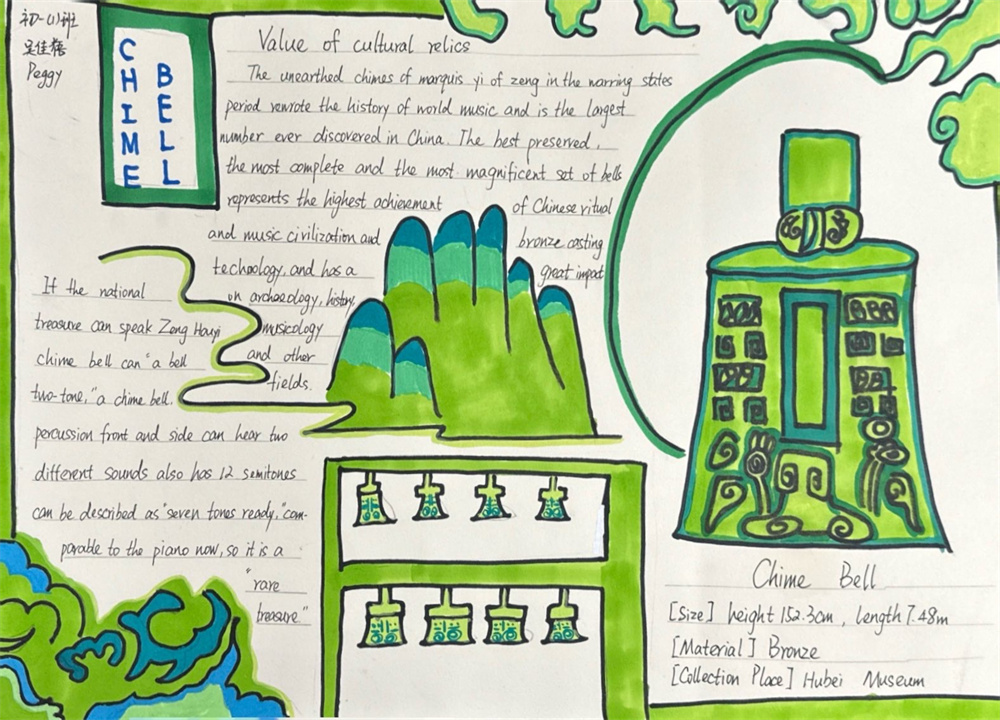 初一(1)班
Peggy
CHIME
BELL
Value of cultural relics
The unearthed chimes of marquis yi of zeng in the warring states
period rewrote the history of world music and is the largest
number ever discovered in China. The best preserved,
the most complete and the most magnificent set of bells
represents the highest achievement of Chinese ritual
and music civilization and bronze casting
technology, and has a great impact
on archaeology, history,
musicology
and other
fields.
If the national
treasure can speak Zeng Houyi
chime bell can "a bell
two-tone," a chime bell.
percussion front and side can hear two
different sounds also has 12 semitones
can be described as "seven tones ready," com-
parable to the piano now, so it is a
"rare
treasure"
Chime Bell
[Size] height 152.3cm, length 7.48m
[Material] Bronze
[Collection Place] Hubei Museum